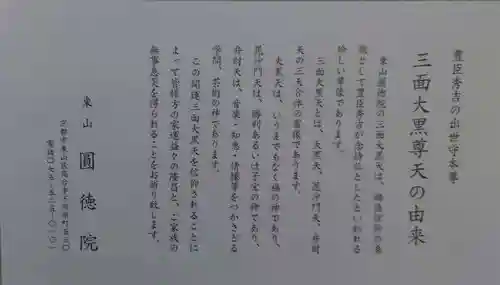 豊臣秀吉の出世守本尊
三面大黒尊天の由来
東山圓徳院の三面大黒天は、
として豊臣秀吉が念持仏としたといわれる
珍しい尊像であります。
三面大黒天とは、大黒天、毘沙門天、弁財
天の三天合体の尊像であります。
大黒天は、いうまでもなく福の神であり、
毘沙門天は、勝利あるいは子宝の神であり、
弁財天は、音楽・知恵・弁舌等をつかさどる
学問、芸術の神であります。
この開運三面大黒天を信仰されることに
よって皆様方の家運益々の隆昌と、ご家族の
無事息災を得られることをお祈り致します。
東山 圓徳院
京都市東山区高台寺下河原町五三〇
電話〇七五―五二五―〇一〇一